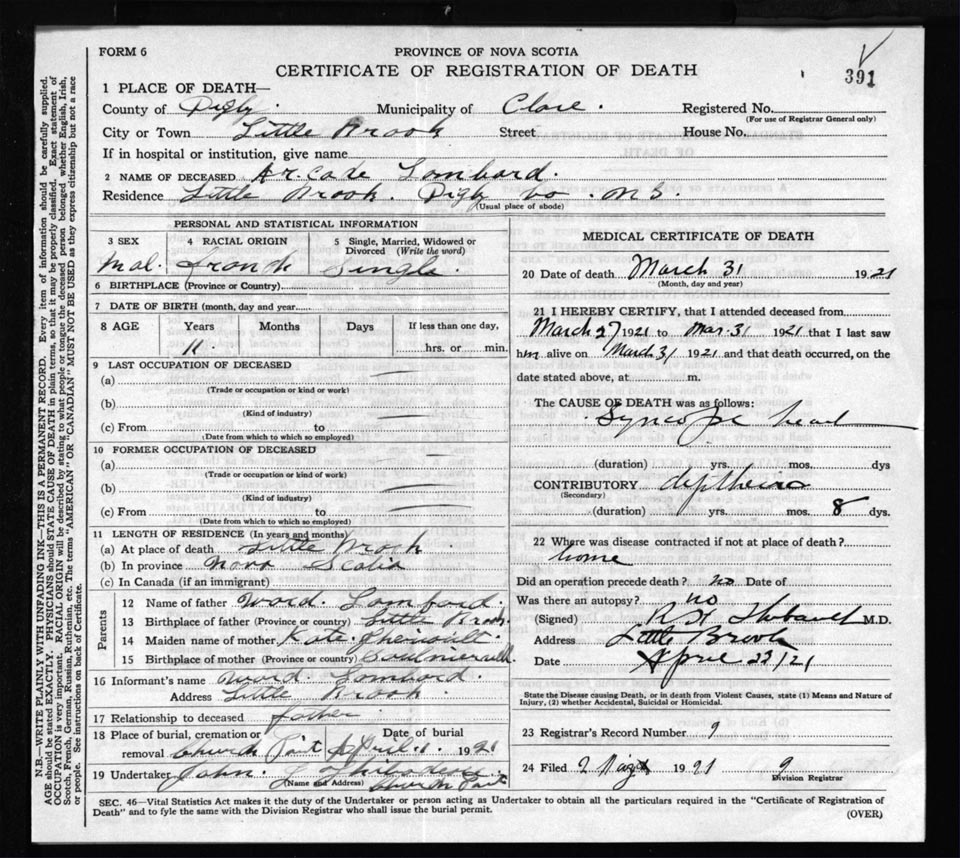 FORM 6
PROVINCE OF NOVA SCOTIA
CERTIFICATE OF REGISTRATION OF DEATH
391
1 PLACE OF DEATH—
County of Digby. Municipality of Clare. Registered No.
(For use of Registrar General only)
City or Town Little Brook Street House No.
If in hospital or institution, give name
2 NAME OF DECEASED Arcade Lombard.
Residence Little Brook. Digby Co. N.S.
(Usual place of abode)
PERSONAL AND STATISTICAL INFORMATION
3 SEX 4 RACIAL ORIGIN 5 Single, Married, Widowed or Divorced (Write the word)
Mal. French Single.
6 BIRTHPLACE (Province or Country)
7 DATE OF BIRTH (month, day and year
8 AGE Years Months Days If less than one day,
11. hrs. or min.
9 LAST OCCUPATION OF DECEASED
(a)
(Trade or occupation or kind or work)
(b)
(Kind of industry)
(c) From to
(Date from which to which so employed)
10 FORMER OCCUPATION OF DECEASED
(a)
(Trade or occupation or kind or work)
(b)
(Kind of industry)
(c) From to
(Date from which to which so employed)
11 LENGTH OF RESIDENCE (In years and months)
(a) At place of death Little Brook
(b) In province Nova Scotia
(c) In Canada (if an immigrant)
Parents
12 Name of father Word. Lombard.
13 Birthplace of father (Province or country) Little Brook.
14 Maiden name of mother. Kate.
15 Birthplace of mother (Province or country)
16 Informant's name Word. Lombard.
Address Little Brook
17 Relationship to deceased father
18 Place of burial, cremation or removal Church Point Date of burial April 1. 1921
19 Undertaker John. Thibodeau
(Name and Address) Church Point
MEDICAL CERTIFICATE OF DEATH
20 Date of death March 31 1921
(Month, day and year)
21 I HEREBY CERTIFY, that I attended deceased from
March 27 1921 to Mar. 31 1921 that I last saw
him alive on March 31 1921 and that death occurred, on the
date stated above, at m.
The CAUSE OF DEATH was as follows:
Syncope heart
(duration) yrs. mos. dys
CONTRIBUTORY diptheria
(Secondary)
(duration) yrs. mos. 8 dys.
22 Where was disease contracted if not at place of death?
home
Did an operation precede death? no Date of
Was there an autopsy? no
(Signed) M.D.
Address Little Brook
Date April 22/21
State the Disease causing Death, or in death from Violent Causes, state (1) Means and Nature of
Injury, (2) whether Accidental, Suicidal or Homicidal.
23 Registrar's Record Number 9
24 Filed 2 1921 9
Division Registrar
SEC. 46—Vital Statistics Act makes it the duty of the Undertaker or person acting as Undertaker to obtain all the particulars required in the "Certificate of Registration of
Death" and to fyle the same with the Division Registrar who shall issue the burial permit.
(OVER)
N.B.—WRITE PLAINLY WITH UNFADING INK—THIS IS A PERMANENT RECORD. Every item of information should be carefully supplied.
AGE should be stated EXACTLY. PHYSICIANS should STATE CAUSE OF DEATH in plain terms, so that it may be properly classified. Exact statement of
OCCUPATION is very important. RACIAL ORIGIN will be described by stating to what people or tongue the deceased person belonged, whether English, Irish,
Scotch, French, German, Russian, Ruthenian, etc. The terms "AMERICAN" or "CANADIAN" MUST NOT BE USED as they express citizenship but not a race
or people. See instructions on back of Certificate.